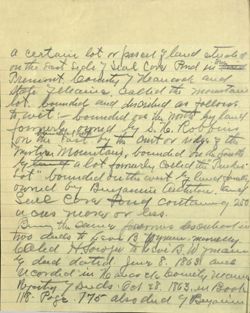 a certain lot or parcel of land situated
on the East side of Seal Cove Pond in
Tremont County of Hancock and
State of Maine called the Mountain
lot. bounded and described as follows
to wit:- bounded on the North by land
formerly owned by S. C. Robbins
on the East by the summit or ridge of the
Mountain, bounded on the South
by a lot formerly called the
Lot" bounded on the west by land formerly
owned by Benjamin and
Seal Cove Pond containing 250
acres more or less.
Being the same premises described in
two deeds to B. Wyman namely
H. to B. Wyman
by deed dated June 8. 1863 and
recorded in Hancock County Maine
Registry of Deeds Oct 28. 1863. in Book
118. Page 775 also deed of Benjamin